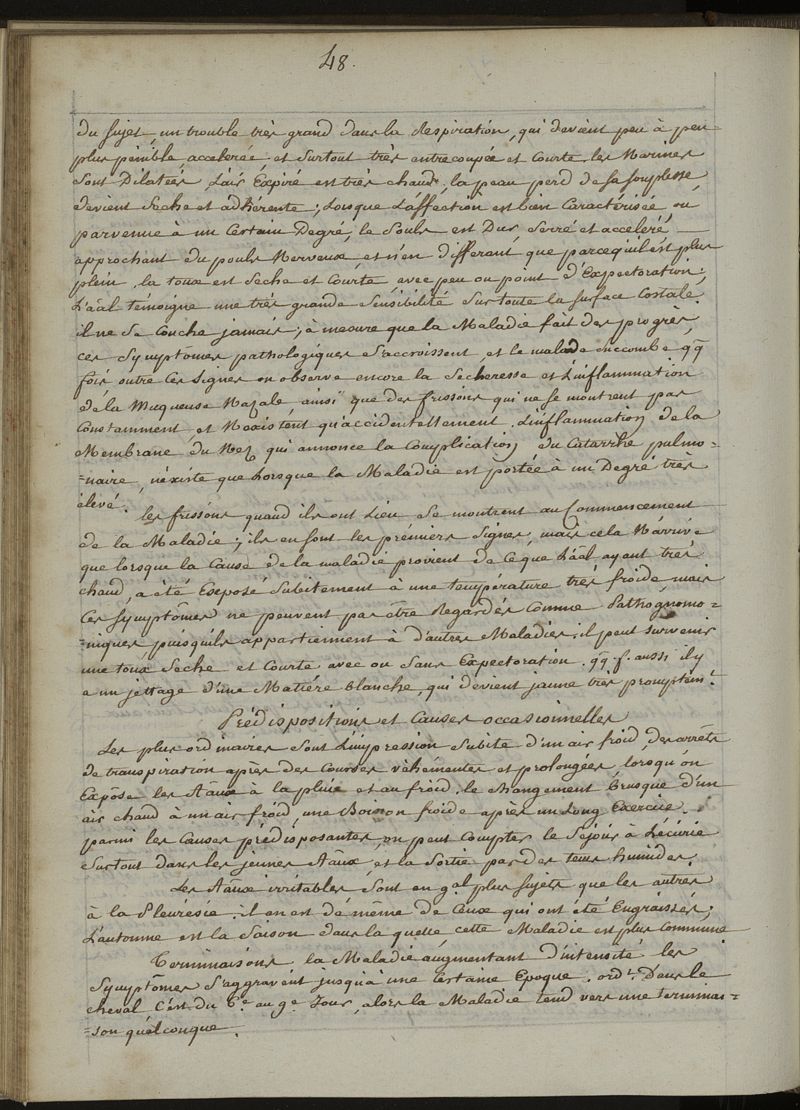 48.
du sujet un trouble très grand dans la Respiration, qui devient peu à peu
plus pénible accelerée et surtout très entrecoupée et Courte. les Narines
sont Dilatées, l'air Expiré est très chaud, la peau perd de sa souplesse
devient seche et adhérente; Lorsque l'affection est bien Caractérisée, ou
parvenue à un Certain Degré, le Pouls est Dur serré et acceléré,
approchant du pouls Nerveux et n'en differant que parcequ'il est plus
plein, la toux est seche et Courte, avec peu ou point d'Expectoration;
L'aâl témoigne une très grande sensibilité sur toute la surface Costale
il ne se Couche jamais; à mesure que la Maladie fait des progrès,
ces symptomes pathologiques s'accroissent, et le malade succombe qq̃
fois outre Ces signes on observe encore la secheresse et L'inflammation
de la Muqueuse Nazale, ainsi que des frissons qui ne se montrent pas
Constamment et N'existent qu'accidentellement. L'inflammation de la
Membrane du Nez qui annonce la Complication du Catarrhe pulmo-
=naire, n'éxiste que Lorsque la Maladie est portée à un Degré très
élevé.
les frissons quand ils ont Lieu se montrent au Commencement
de la Maladie; ils en font les prémiers signes, mais cela N'arrive
que lorsque la Cause de la maladie provient de Ce que L'aâl ayant très
chaud, a été Exposé subitement à une température très froide mais
Ces symptômes ne peuvent pas être Regardés comme Pathognomo-
=niques puisqu'ils appartiennent à d'autres Maladies. il peut survenir
une toux seche et Courte avec ou sans Expectoration. qq̃ f. aussi il y
a un jettage d'une Matière blanche, qui devient jaune très promptemt
Prédispositions et Causes occasionnelles
Les plus ordinaires sont L'impression subite d'un air froid, des arrêts
de transpiration après des Courses véhémentes et prolongées, lorsqu'on
Expose les Aâux à la pluie et au froid, le changement brusque d'un
air chaud à un air froid, une Boisson froide après un long Exercice.
parmi les Causes prédisposantes, on peut Compter le Séjour à L'écurie
surtout dans les jeunes Aâux, et la sortie par des tems humides
Les Aâux irritables sont en gal plus sujets que les autres
à la Pleurésie. il en est de même de Ceux qui ont été Engraissés;
L'automne est la saison dans laquelle cette Maladie est plus Commune
Terminaisons la Maladie augmentant d'intensité les
Symptômes s'aggravent jusqu'à une Certaine Epoque. ordt Dans le
cheval c'est du 6e au 9e Jour, alors la Maladie tend vers une terminai-
=son quélconque.